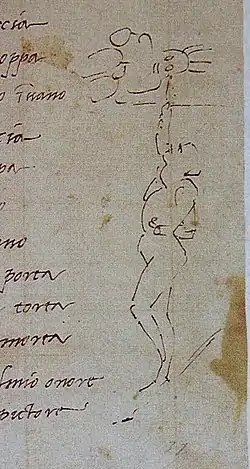 ccia
oppa
o strano
ccia
pa
o
ano
porta
torta
morta
lmio onore
pictore